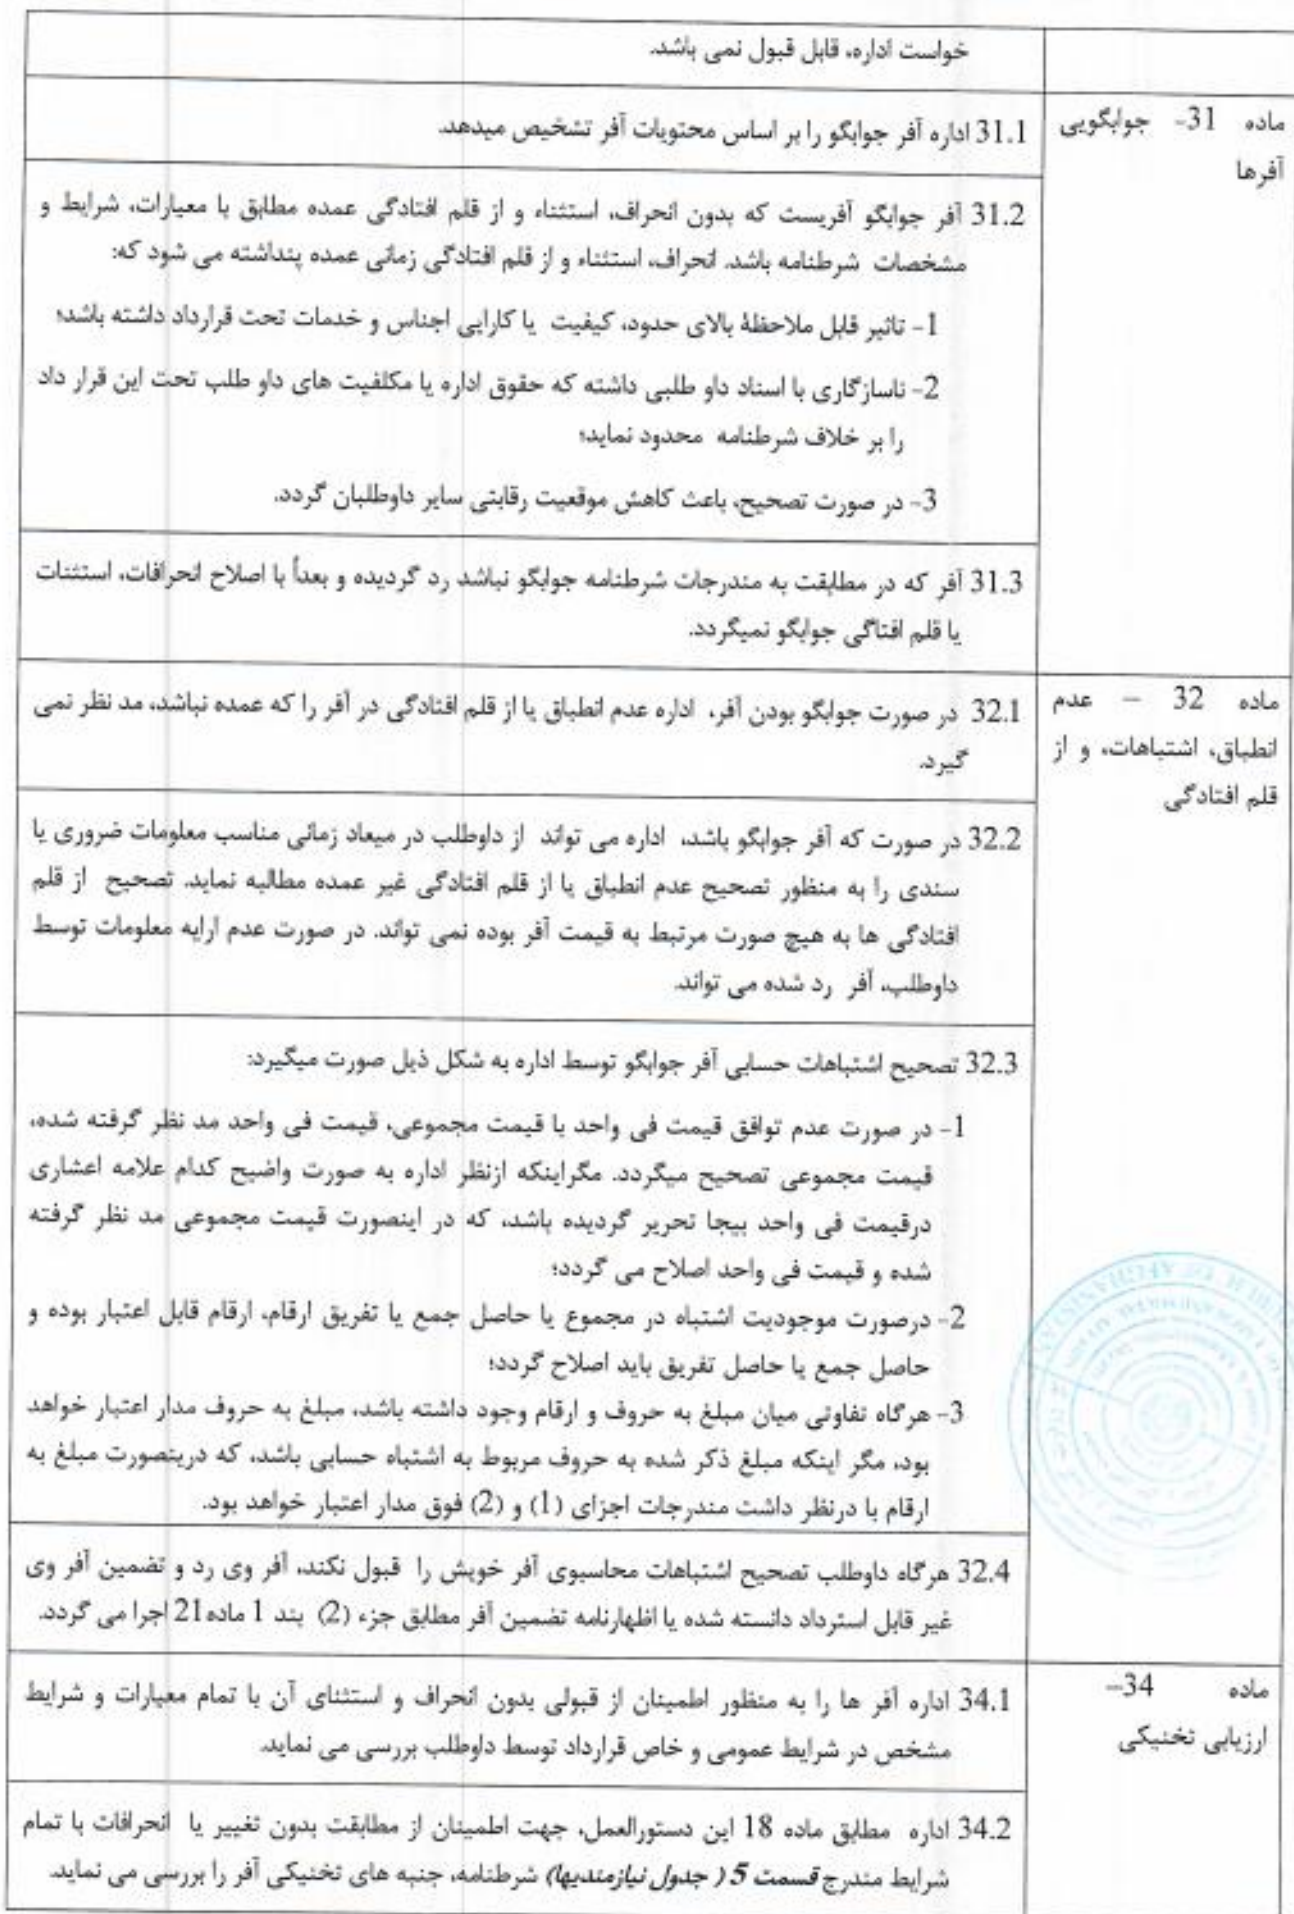 خواست اداره، قابل قبول نمی باشد.
ماده 31- جوابگویی
آفرها
31.1 اداره آفر جوابگو را بر اساس محتویات آفر تشخیص میدهد.
31.2 آفر جوابگو آفریست که بدون انحراف، استثناء و از قلم افتادگی عمده مطابق با معیارات، شرایط و
مشخصات شرطنامه باشد. انحراف، استثناء و از قلم افتادگی زمانی عمده پنداشته می شود که:
1- تاثیر قابل ملاحظۀ بالای حدود، کیفیت یا کارایی اجناس و خدمات تحت قرارداد داشته باشد؛
2- ناسازگاری با اسناد داو طلبی داشته که حقوق اداره یا مکلفیت های داو طلب تحت این قرار داد
را بر خلاف شرطنامه محدود نماید؛
3- در صورت تصحیح، باعث کاهش موقعیت رقابتی سایر داوطلبان گردد.
31.3 آفر که در مطابقت به مندرجات شرطنامه جوابگو نباشد رد گردیده و بعداً با اصلاح انحرافات، استثنات
یا قلم افتاگی جوابگو نمیگردد.
ماده 32 – عدم
انطباق، اشتباهات، و از
قلم افتادگی
32.1 در صورت جوابگو بودن آفر، اداره عدم انطباق یا از قلم افتادگی در آفر را که عمده نباشد، مد نظر نمی
گیرد.
32.2 در صورت که آفر جوابگو باشد، اداره می تواند از داوطلب در میعاد زمانی مناسب معلومات ضروری یا
سندی را به منظور تصحیح عدم انطباق یا از قلم افتادگی غیر عمده مطالبه نماید. تصحیح از قلم
افتادگی ها به هیچ صورت مرتبط به قیمت آفر بوده نمی تواند. در صورت عدم ارایه معلومات توسط
داوطلب، آفر رد شده می تواند.
32.3 تصحیح اشتباهات حسابی آفر جوابگو توسط اداره به شکل ذیل صورت میگیرد:
1- در صورت عدم توافق قیمت فی واحد با قیمت مجموعی، قیمت فی واحد مد نظر گرفته شده،
قیمت مجموعی تصحیح میگردد. مگراینکه ازنظر اداره به صورت واضیح کدام علامه اعشاری
درقیمت فی واحد بیجا تحریر گردیده باشد، که در اینصورت قیمت مجموعی مد نظر گرفته
شده و قیمت فی واحد اصلاح می گردد؛
2- درصورت موجودیت اشتباه در مجموع یا حاصل جمع یا تفریق ارقام، ارقام قابل اعتبار بوده و
حاصل جمع یا حاصل تفریق باید اصلاح گردد؛
3- هرگاه تفاوتی میان مبلغ به حروف و ارقام وجود داشته باشد، مبلغ به حروف مدار اعتبار خواهد
بود، مگر اینکه مبلغ ذکر شده به حروف مربوط به اشتباه حسابی باشد، که درینصورت مبلغ به
ارقام با درنظر داشت مندرجات اجزای (1) و (2) فوق مدار اعتبار خواهد بود.
32.4 هرگاه داوطلب تصحیح اشتباهات محاسبوی آفر خویش را قبول نکند، آفر وی رد و تضمین آفر وی
غیر قابل استرداد دانسته شده یا اظهارنامه تضمین آفر مطابق جزء (2) بند 1 ماده21 اجرا می گردد.
ماده 34–
ارزیابی تخنیکی
34.1 اداره آفر ها را به منظور اطمینان از قبولی بدون انحراف و استثنای آن با تمام معیارات و شرایط
مشخص در شرایط عمومی و خاص قرارداد توسط داوطلب بررسی می نماید.
34.2 اداره مطابق ماده 18 این دستورالعمل، جهت اطمینان از مطابقت بدون تغییر یا انحرافات با تمام
شرایط مندرج قسمت 5 ( جدول نیازمندیها) شرطنامه، جنبه های تخنیکی آفر را بررسی می نماید.